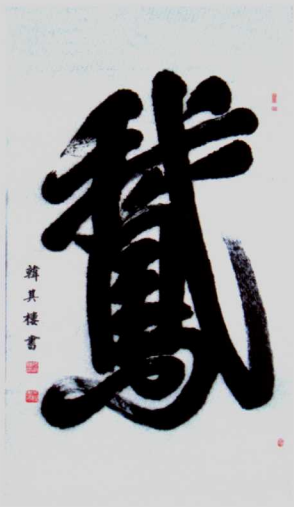 鵞
韓其樓書